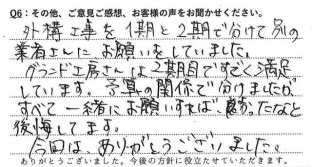 Q6：その他、ご意見ご感想、お客様の声をお聞かせください。
外構工事を1期と2期で分けて別の
業者さんにお願いをしていました。
グランド工房さんは2期目ですごく満足
しています。予算の関係で分けましたが
すべて一緒にお願いすれば、良かったなと
後悔してます。
今回は、ありがとうございました。
ありがとうございました。今後の方針に役立たせていただきます。